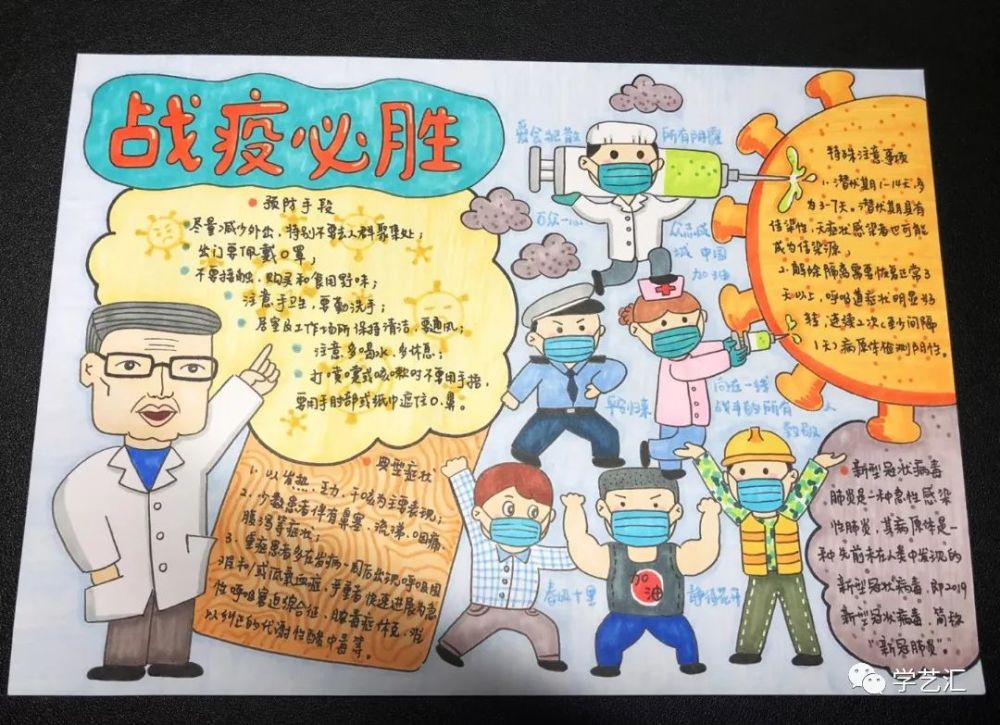 战疫必胜
预防手段
尽量减少外出，特别不要去人群聚集处；
出门要佩戴口罩；
不要接触，购买和食用野味；
注意手卫生，要勤洗手；
居室及工作场所保持清洁，要通风；
注意多喝水，多休息；
打喷嚏或咳嗽时不要用手捂，
要用手肘部或纸巾遮住口、鼻。
典型症状
1. 以发热、乏力、干咳为主要表现；
2. 少数患者伴有鼻塞、流涕、咽痛、
腹泻等症状；
3. 重症患者多在发病一周后出现呼吸困
难和/或低氧血症，严重者快速进展为急
性呼吸窘迫综合征、脓毒症休克、难
以纠正的代谢性酸中毒等。
爱会驱散
所有阴霾
万众一心
众志成
城 中国
加油
平安归来
向在一线
战斗的所有人
致敬
春风十里
静待花开
加
油
特殊注意事项
1. 潜伏期1-14天，多
为3-7天。潜伏期具有
传染性，无症状感染者也可能
成为传染源；
2. 解除隔离需要体温正常3
天以上，呼吸道症状明显好
转，连续2次（至少间隔
1天）病原体检测阴性。
新型冠状病毒
肺炎是一种急性感染
性肺炎，其病原体是一
种先前未在人类中发现的
新型冠状病毒，即2019
新型冠状病毒，简称
“新冠肺炎”。
学艺汇